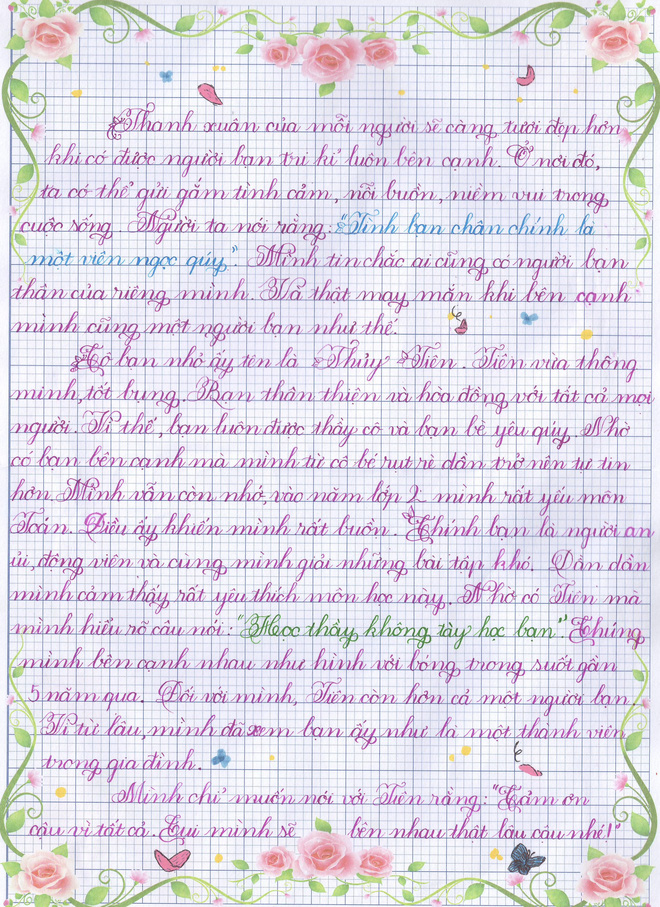 Thanh xuân của mỗi người sẽ càng tươi đẹp hơn
khi có được người bạn tri kỉ luôn bên cạnh. Ở nơi đó,
ta có thể gửi gắm tình cảm, nỗi buồn, niềm vui trong
cuộc sống. Người ta nói rằng: "Tình bạn chân chính là
một viên ngọc quý". Mình tin chắc ai cũng có người bạn
thân của riêng mình. Và thật may mắn khi bên cạnh
mình cũng một người bạn như thế.
Cô bạn nhỏ ấy tên là Thủy Tiên. Tiên vừa thông
minh, tốt bụng. Bạn thân thiện và hòa đồng với tất cả mọi
người. Vì thế, bạn luôn được thầy cô và bạn bè yêu quý. Nhờ
có bạn bên cạnh mà mình từ cô bé rụt rè dần trở nên tự tin
hơn. Mình vẫn còn nhớ, vào năm lớp 2 mình rất yếu môn
Toán. Điều ấy khiến mình rất buồn. Chính bạn là người an
ủi, động viên và cùng mình giải những bài tập khó. Dần dần
mình cảm thấy rất yêu thích môn học này. Nhờ có Tiên mà
mình hiểu rõ câu nói: "Học thầy không tày học bạn". Chúng
mình bên cạnh nhau như hình với bóng trong suốt gần
5 năm qua. Đối với mình, Tiên còn hơn cả một người bạn.
Vì từ lâu, mình đã xem bạn ấy như là một thành viên
trong gia đình.
Mình chỉ muốn nói với Tiên rằng: "Cảm ơn
cậu vì tất cả. Tụi mình sẽ bên nhau thật lâu cậu nhé!"